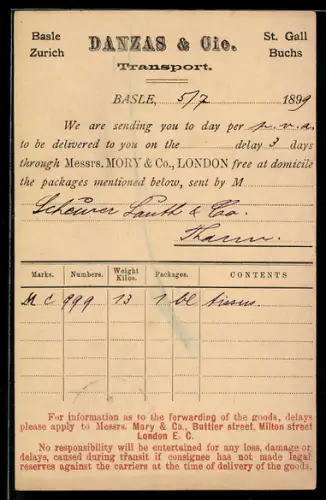 Basle
Zurich
DANZAS & Cie.
Transport.
St. Gall
Buchs
BASLE, 5/7 1899
We are sending you to day per p.v.a.
to be delivered to you on the delay 3 days
through Messrs. MORY & Co., LONDON free at domicile
the packages mentioned below, sent by M
Scheurer Lauth & Co.
Thann.
Marks. Numbers. Weight Kilos. Packages. CONTENTS
M C 999 13 1 bl tissus.
For information as to the forwarding of the goods, delays
please apply to Messrs. Mory & Co., Buttler street, Milton street
London E. C.
No responsibility will be entertained for any loss, damage or
delays, caused during transit if consignee has not made legal
reserves against the carriers at the time of delivery of the goods.